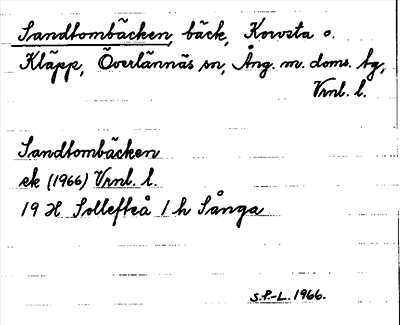 Sandtombäcken, bäck, Korsta o.
Kläpp, Överlännäs sn, Ång. m. doms. tg,
Vrnl. l.
Sandtombäcken
ek (1966) Vrnl. l.
19 H Sollefteå 1 h Sånga
S.P.-L. 1966.